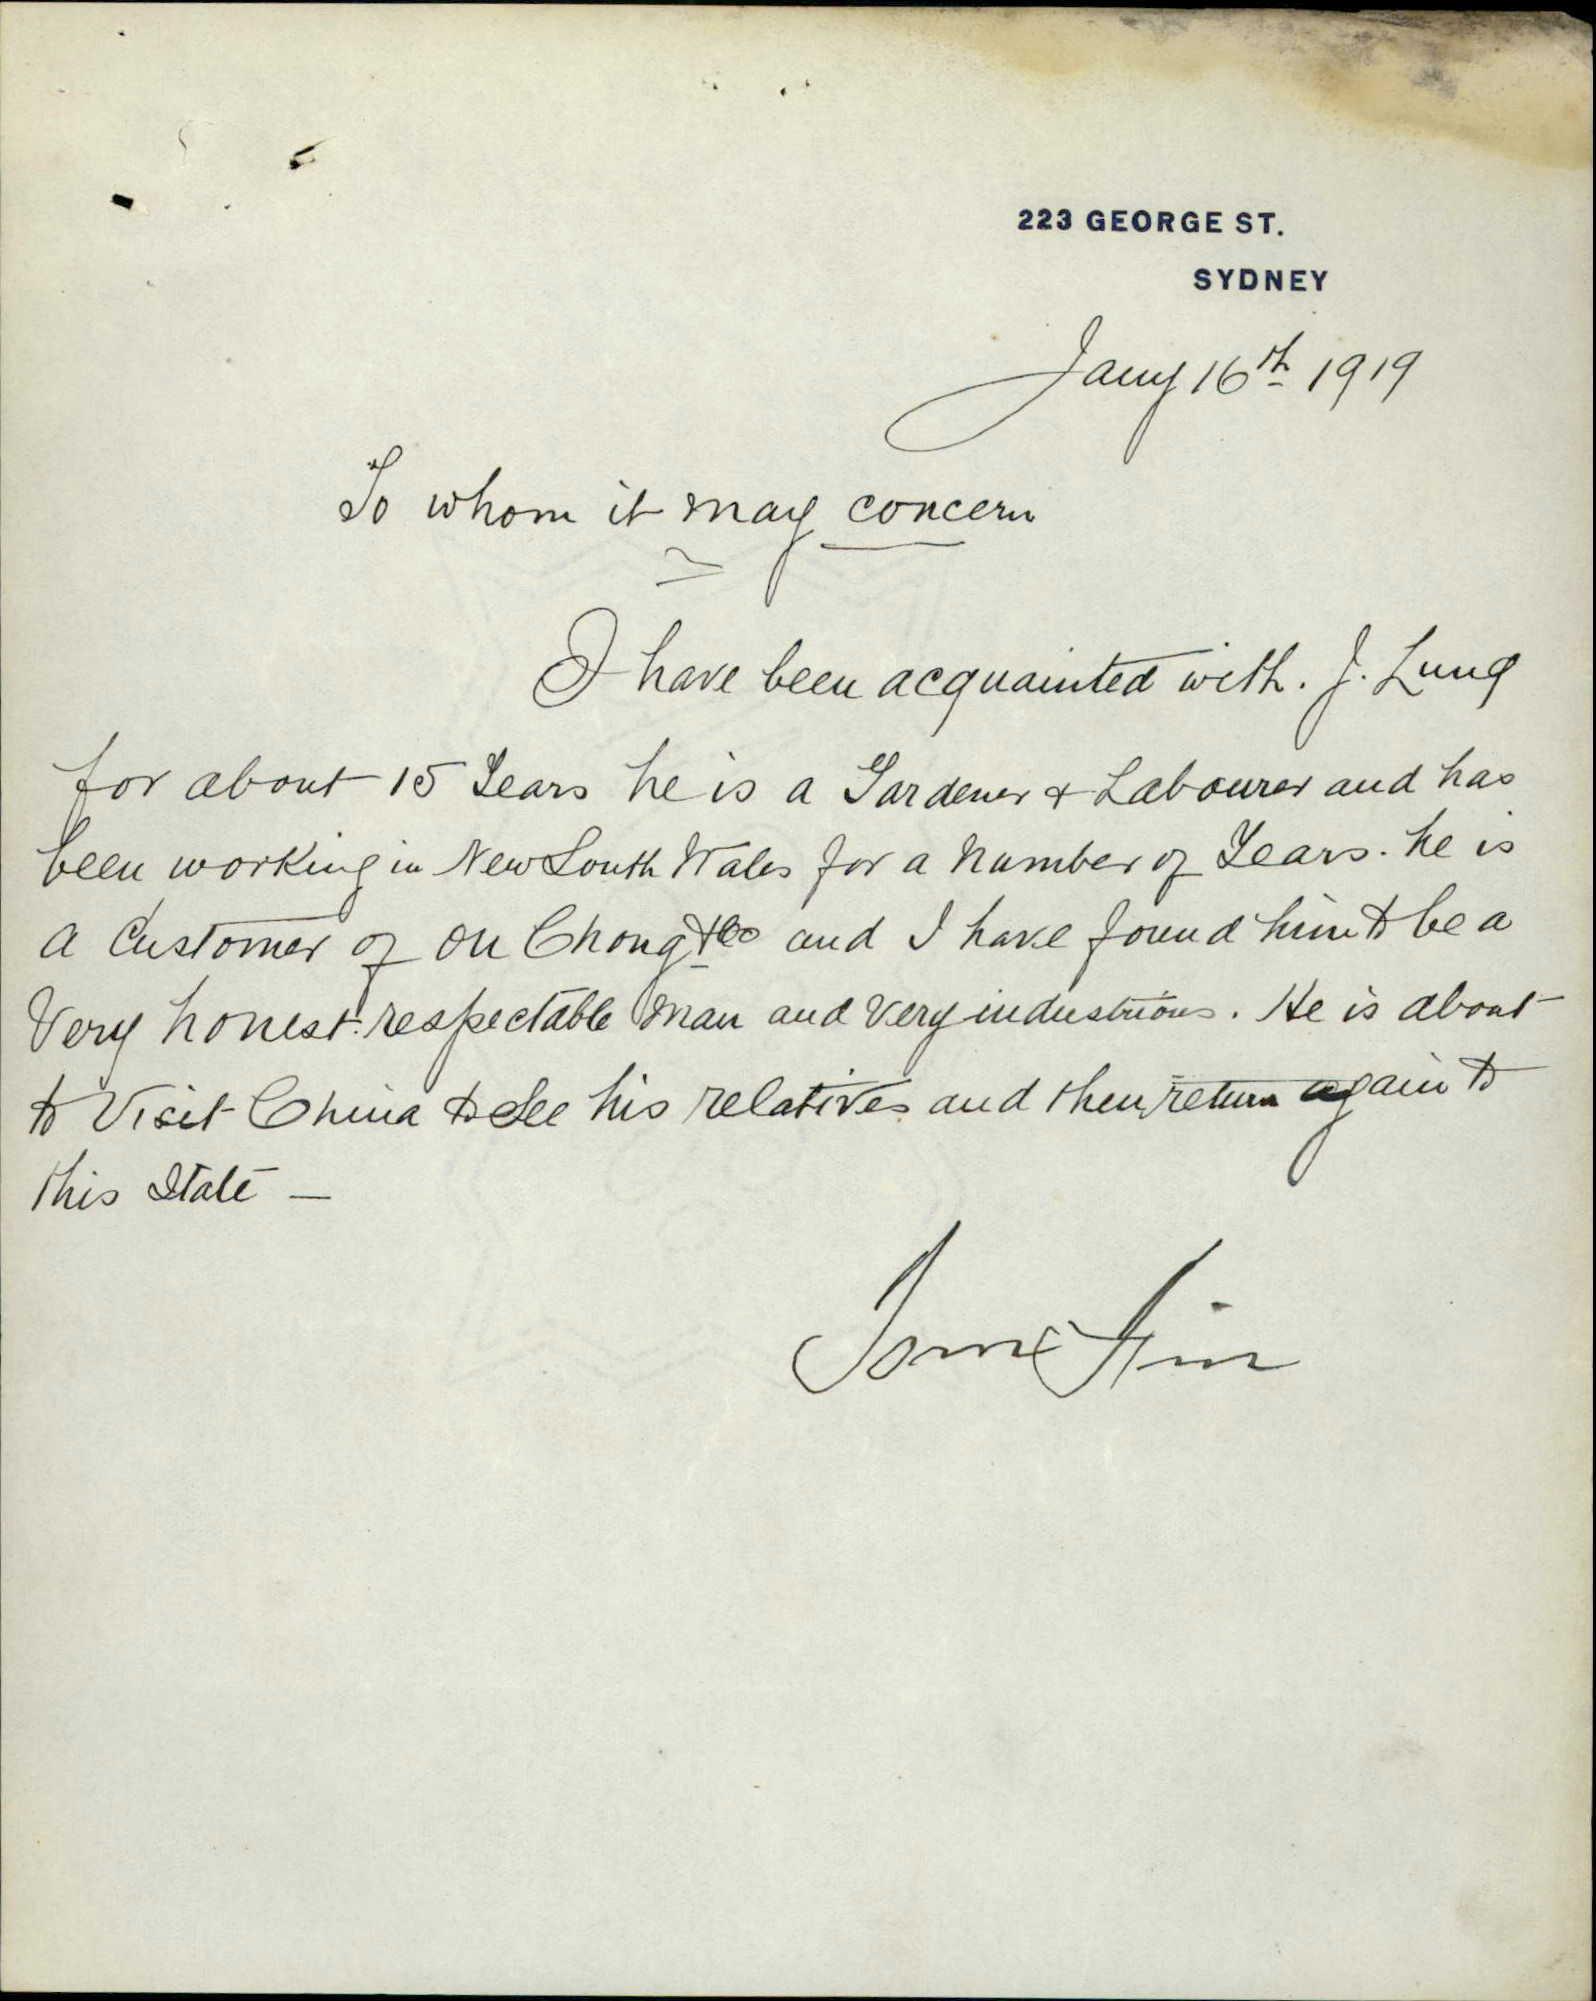 223 GEORGE ST.
SYDNEY
Jany 16th 1919
To whom it may concern
I have been acquainted with. J. Lung
for about 15 Years he is a Gardener & Labourer and has
been working in New South Wales for a number of Years. he is
a Customer of On Chong & Co and I have found him to be a
Very honest respectable man and very industrious. He is about
to Visit China to See his relatives and then return again to
this State —